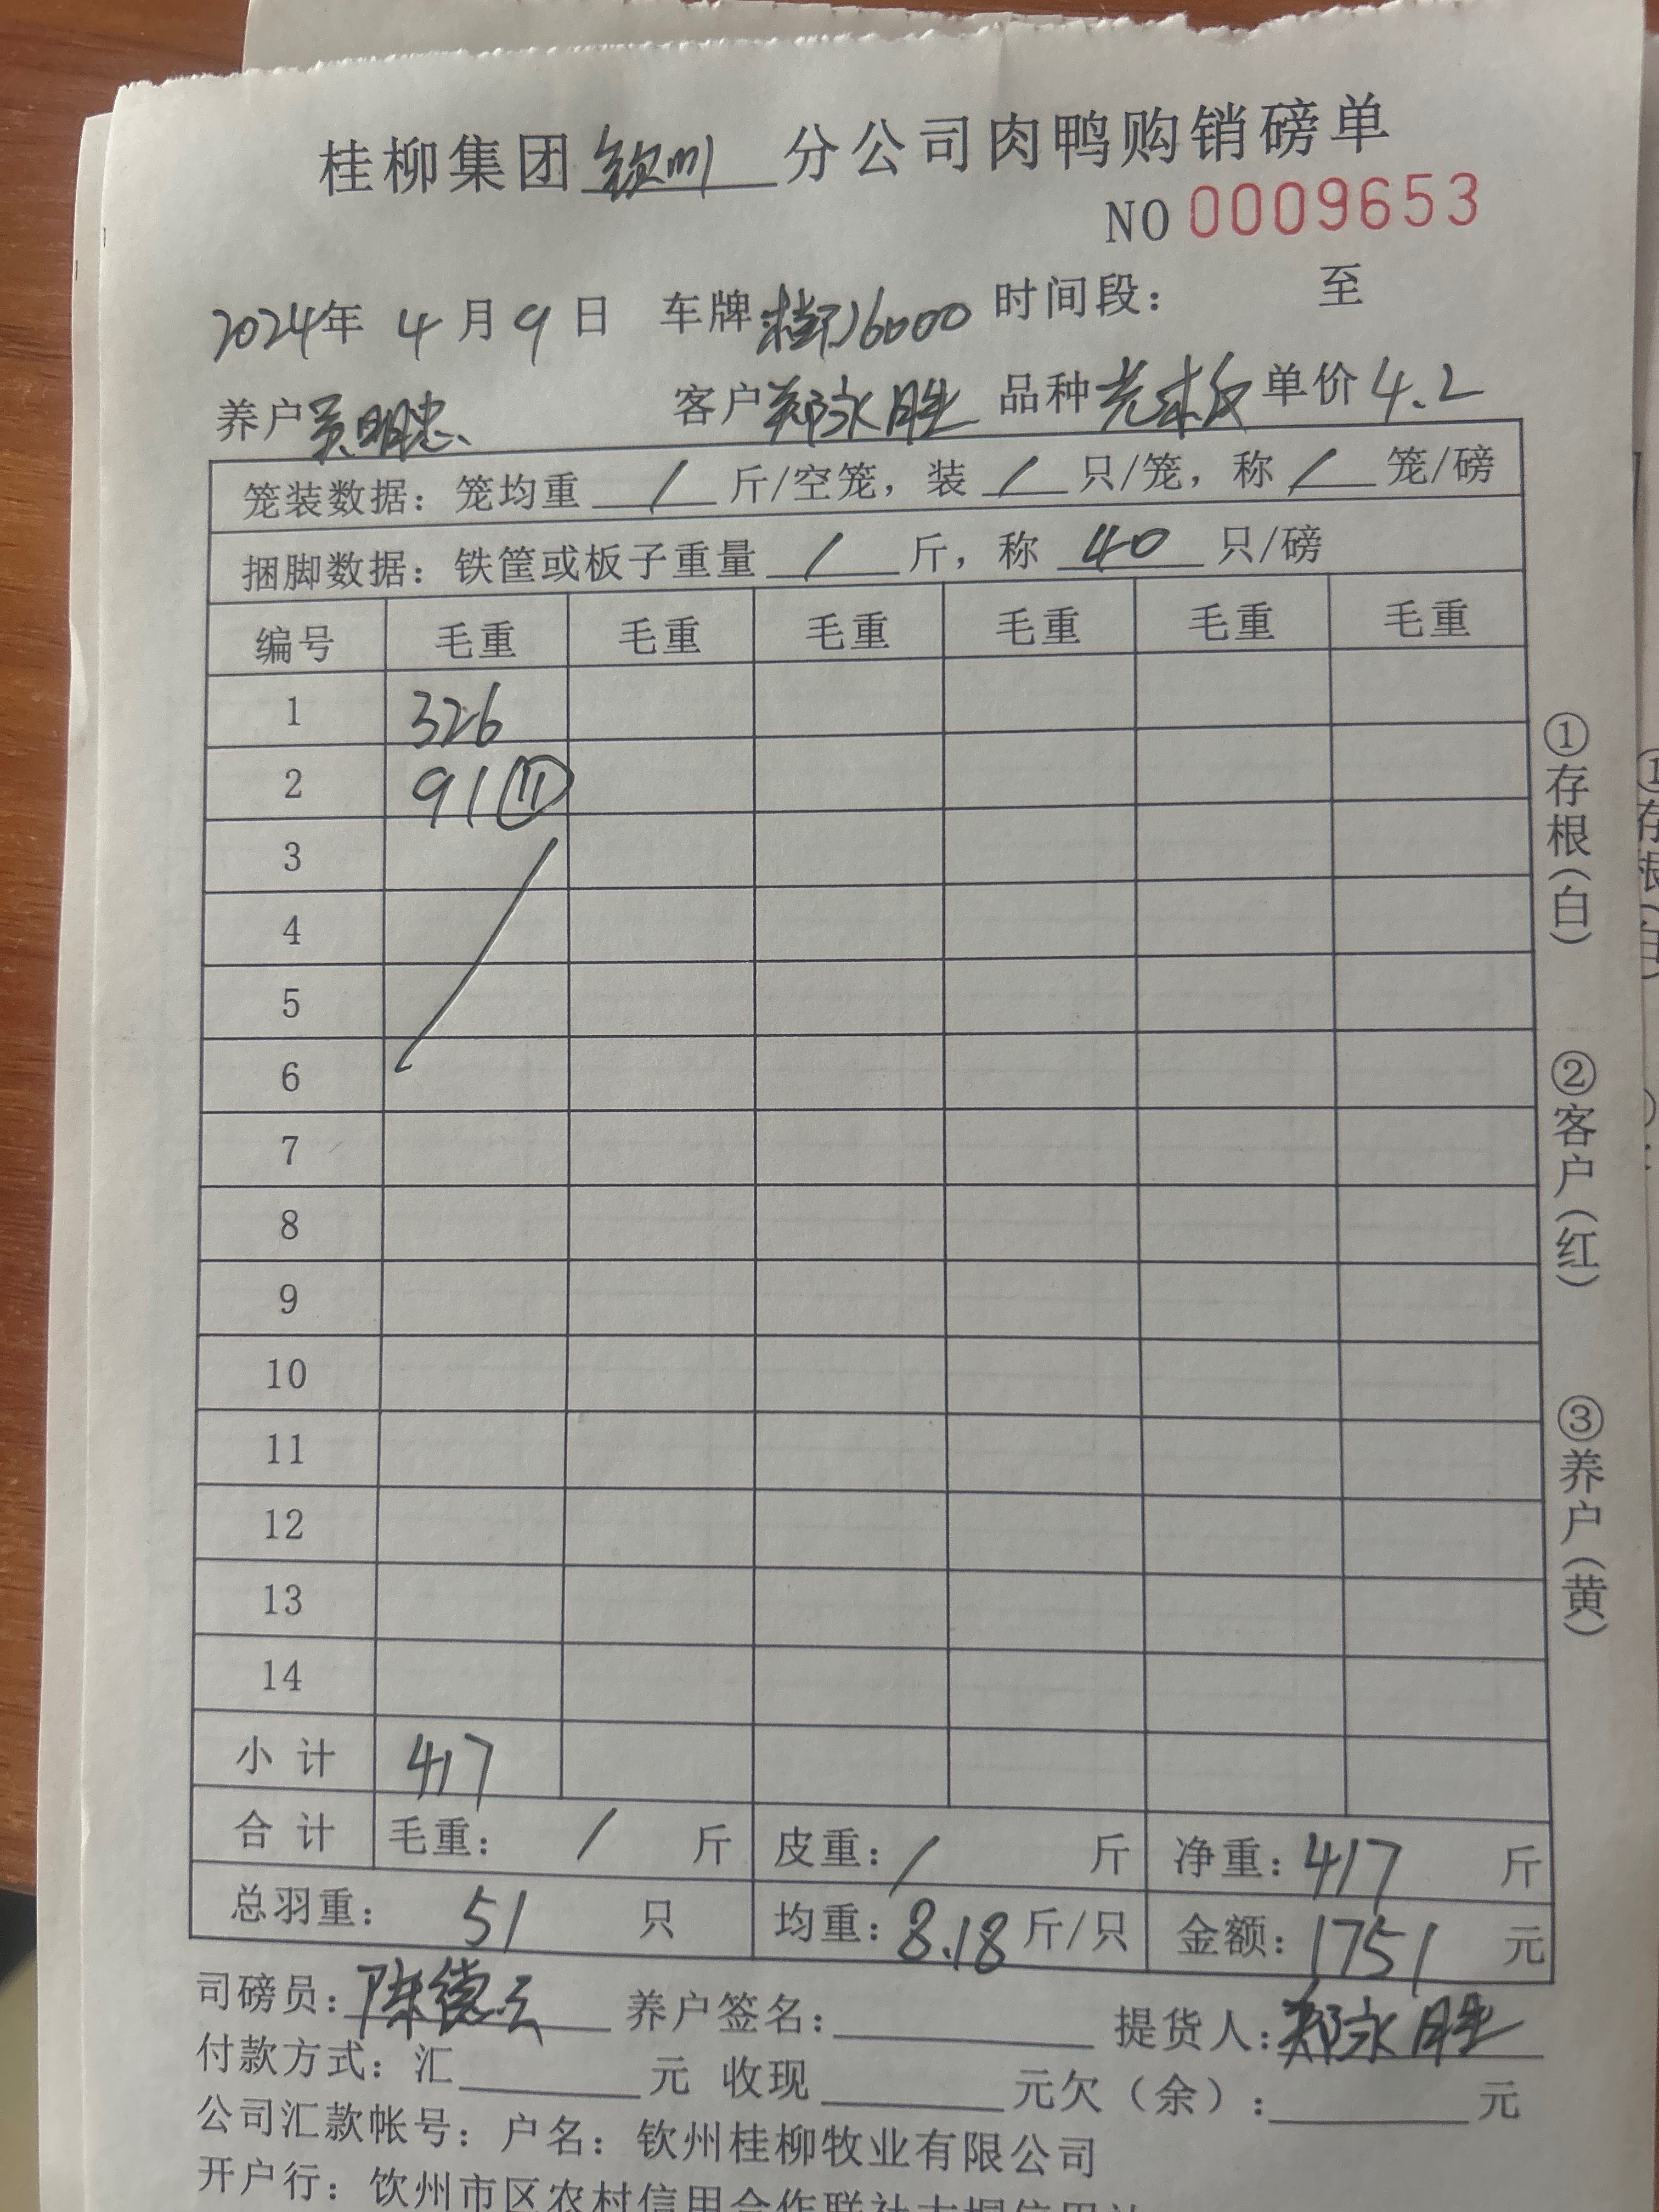 桂柳集团钦州分公司肉鸭购销磅单
NO 0009653
2024年 4 月 9 日 车牌 6000 时间段: 至
养户 明忠 客户郑永胜 品种 单价4.2
笼装数据: 笼均重 / 斤/空笼, 装 / 只/笼, 称 / 笼/磅
捆脚数据: 铁筐或板子重量 / 斤, 称 40 只/磅
编号 毛重 毛重 毛重 毛重 毛重 毛重
1 326
2 91 ⑪
3
4
5
6
7
8
9
10
11
12
13
14
小 计 417
合 计 毛重: / 斤 皮重: / 斤 净重: 417 斤
总羽重: 51 只 均重: 8.18 斤/只 金额: 1751 元
司磅员: 陈德云 养户签名: 提货人: 郑永胜
付款方式: 汇 元 收现 元欠(余): 元
公司汇款帐号: 户名: 钦州桂柳牧业有限公司
开户行: 钦州市区农村信用合作联社
①存根(白)
②客户(红)
③养户(黄)